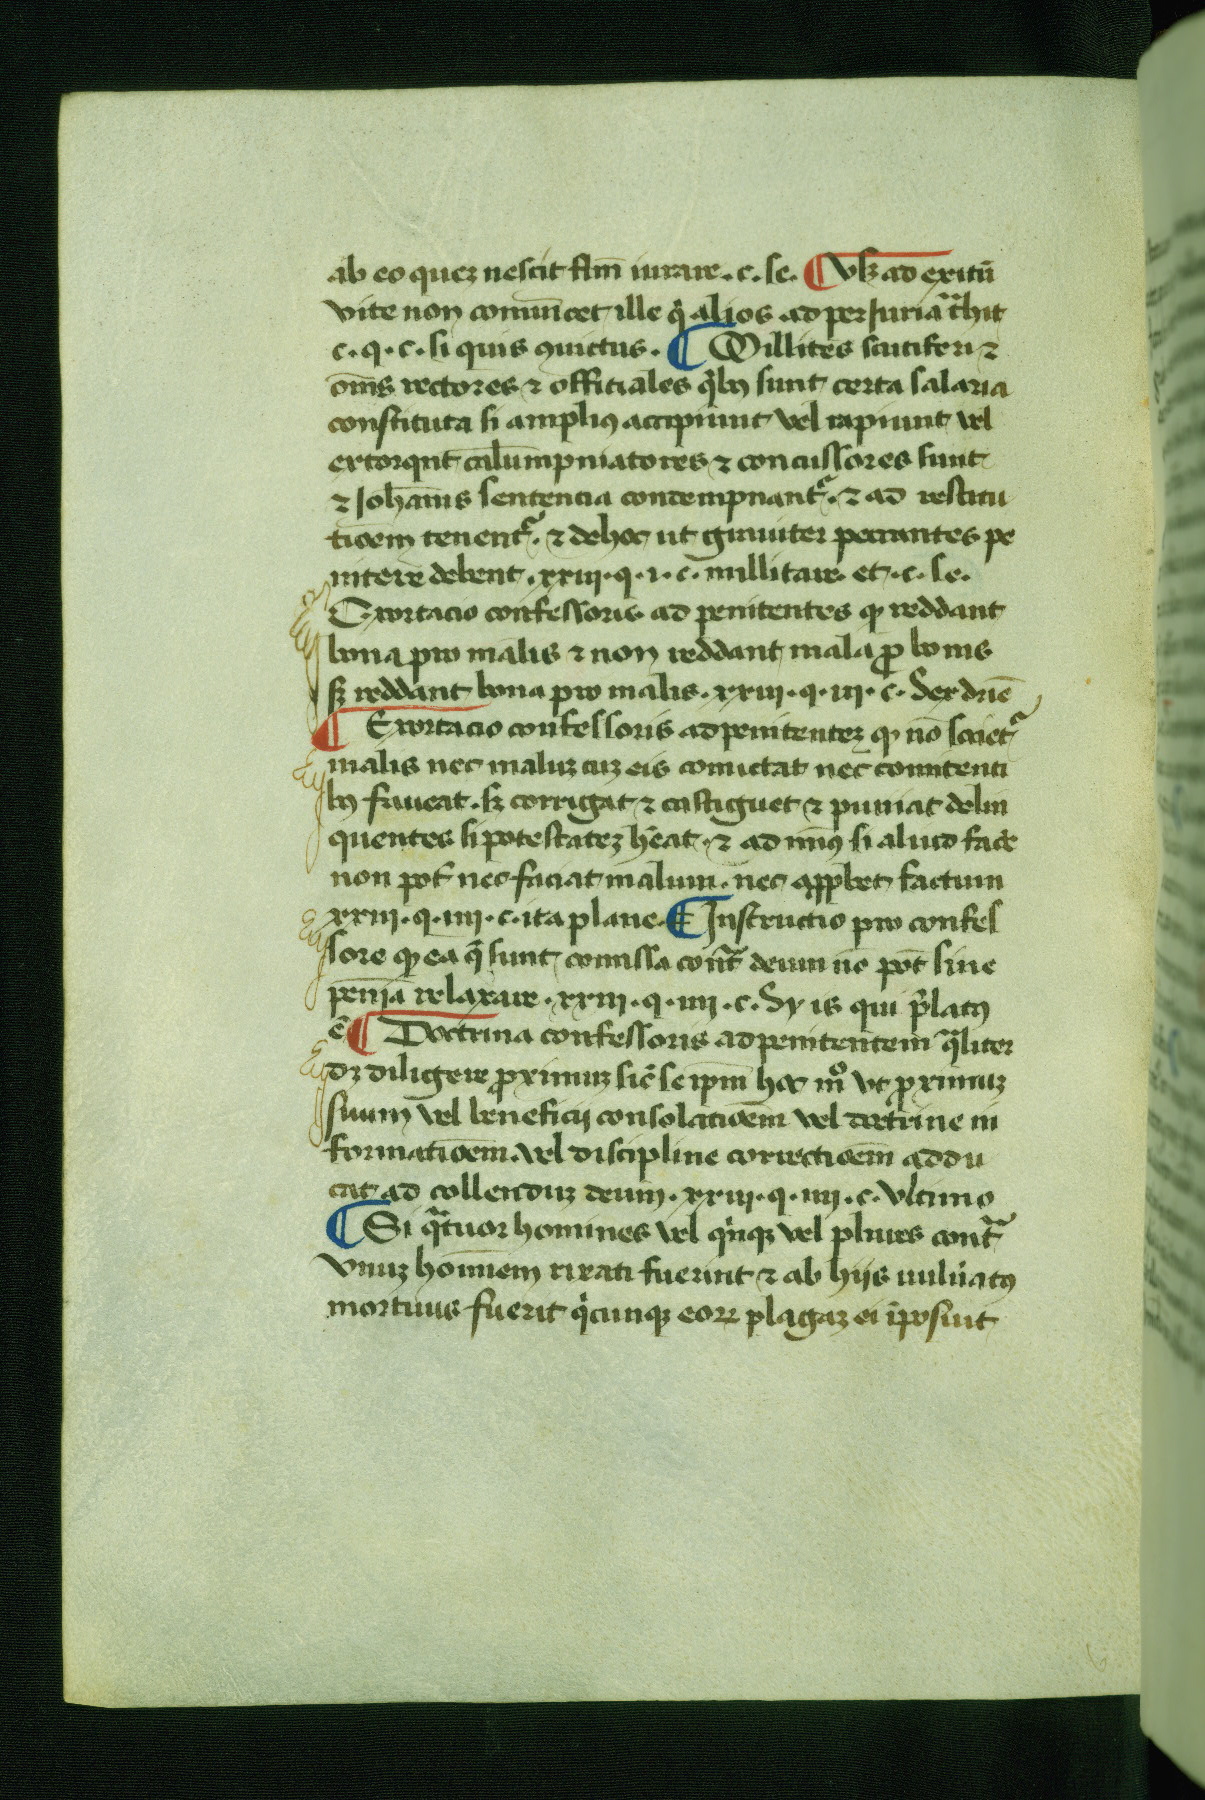 ab eo quez nescit ſtm̄ iurare · c · ſe · ¶ vſz ad exitū
vite non comūicet ille qͥ alios ad perJuriā tͣhit
c · q · c · ſi quis ꝯuictus · ¶ Millites scutiferi ⁊
om̄s rectores ⁊ offitiales qͥbꝰ ſunt certa ſalaria
constituta ſi ampliꝰ accipiunt vel rapiunt vel
extorqnt calūmpniatores ⁊ concuſſores ſunt
⁊ Joh̄anis ſentencia contempnantᷣ · ⁊ ad restitu
tiōem tenentᷣ · ⁊ dehoc ut grauiter peccantes pe
nitere debent · xxiii · q · i · c · millitare et · c · ſe ·
Exortacio confeſſoris ad penitentes ꝙ reddant
bona pro malis ⁊ non reddant mala ꝓ bonis
ſz reddant bona pro malis · xxiii · q · iii · c · Sex
¶ Exortacio confeſſoris ad penitentez ꝙ nō ſocietᷣ
malis nec maluz cuz eis comictat nec comitenti
bꝰ faueat · ſz corrigat ⁊ castiguet ⁊ puniat delin
quentes ſi potestatez h̄eat · ⁊ ad minꝰ ſi aliud fac̄e
non pot̄ nec faciat malum · nec aꝓbet factum
xxiii · q · iiii · c · ita plane · ¶ Instructio pro confeſ
ſore ꝙ ea q̄ ſunt comiſſa contͣ deum nō pōt ſine
penīa relaxare · xxiii · q · iiii · c · Sy is qui p̄latꝰ
ē ¶ Doctrina confeſſoris ad penitentem qͣliter
dz diligere ꝓximuz ſic̄ ſe ip̄m hoc mͦ vt ꝓximuz
ſuum vel beneficij conſolatiōem vel doctrine in
formatiōem vel diſcipline correctiōem addu
cat ad collenduz deum · xxiii · q · iiii · c · vltimo
¶ Si qͣtuor homines vel qͥnqꝫ vel plures contͣ
vnuz hoīnem rixati fuerint ⁊ ab hijs uuln̄atꝰ
mortuus fuerit qͥcunqꝫ eoꝝ plagaz ei īpoſuit